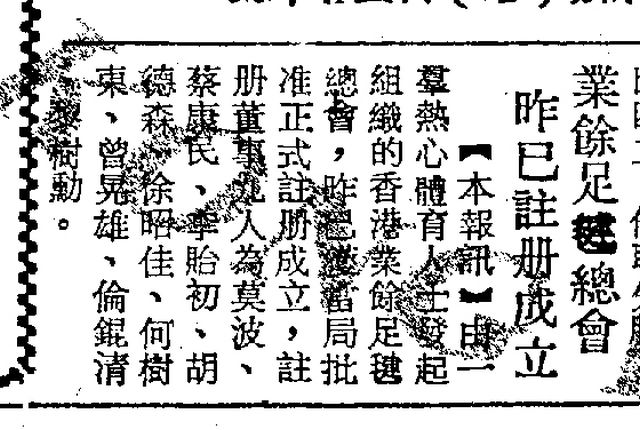 業餘足毽總會
昨已註册成立
【本報訊】由一
羣熱心體育人士發起
組織的香港業餘足毽
總會，昨已獲當局批
准正式註册成立，註
册董事九人為莫波、
蔡康民、李貽初、胡
德森、徐昭佳、何樹
東、曾晃雄、倫錕清
、黎樹勳。